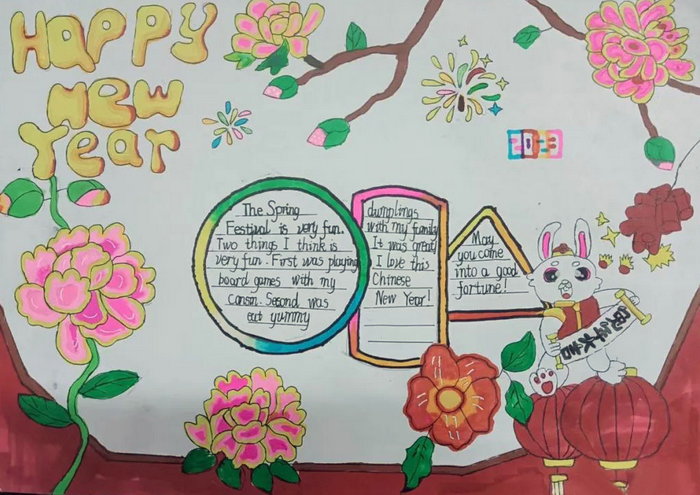 HAPPY
New
Year
The Spring
Festival is very fun.
Two things I think is
very fun. First was playing
board games with my
cansin. Second was
eat yummy
dumplings
with my family
It was great!
I love this
Chinese
New Year!
May
you come
into a good
fortune!